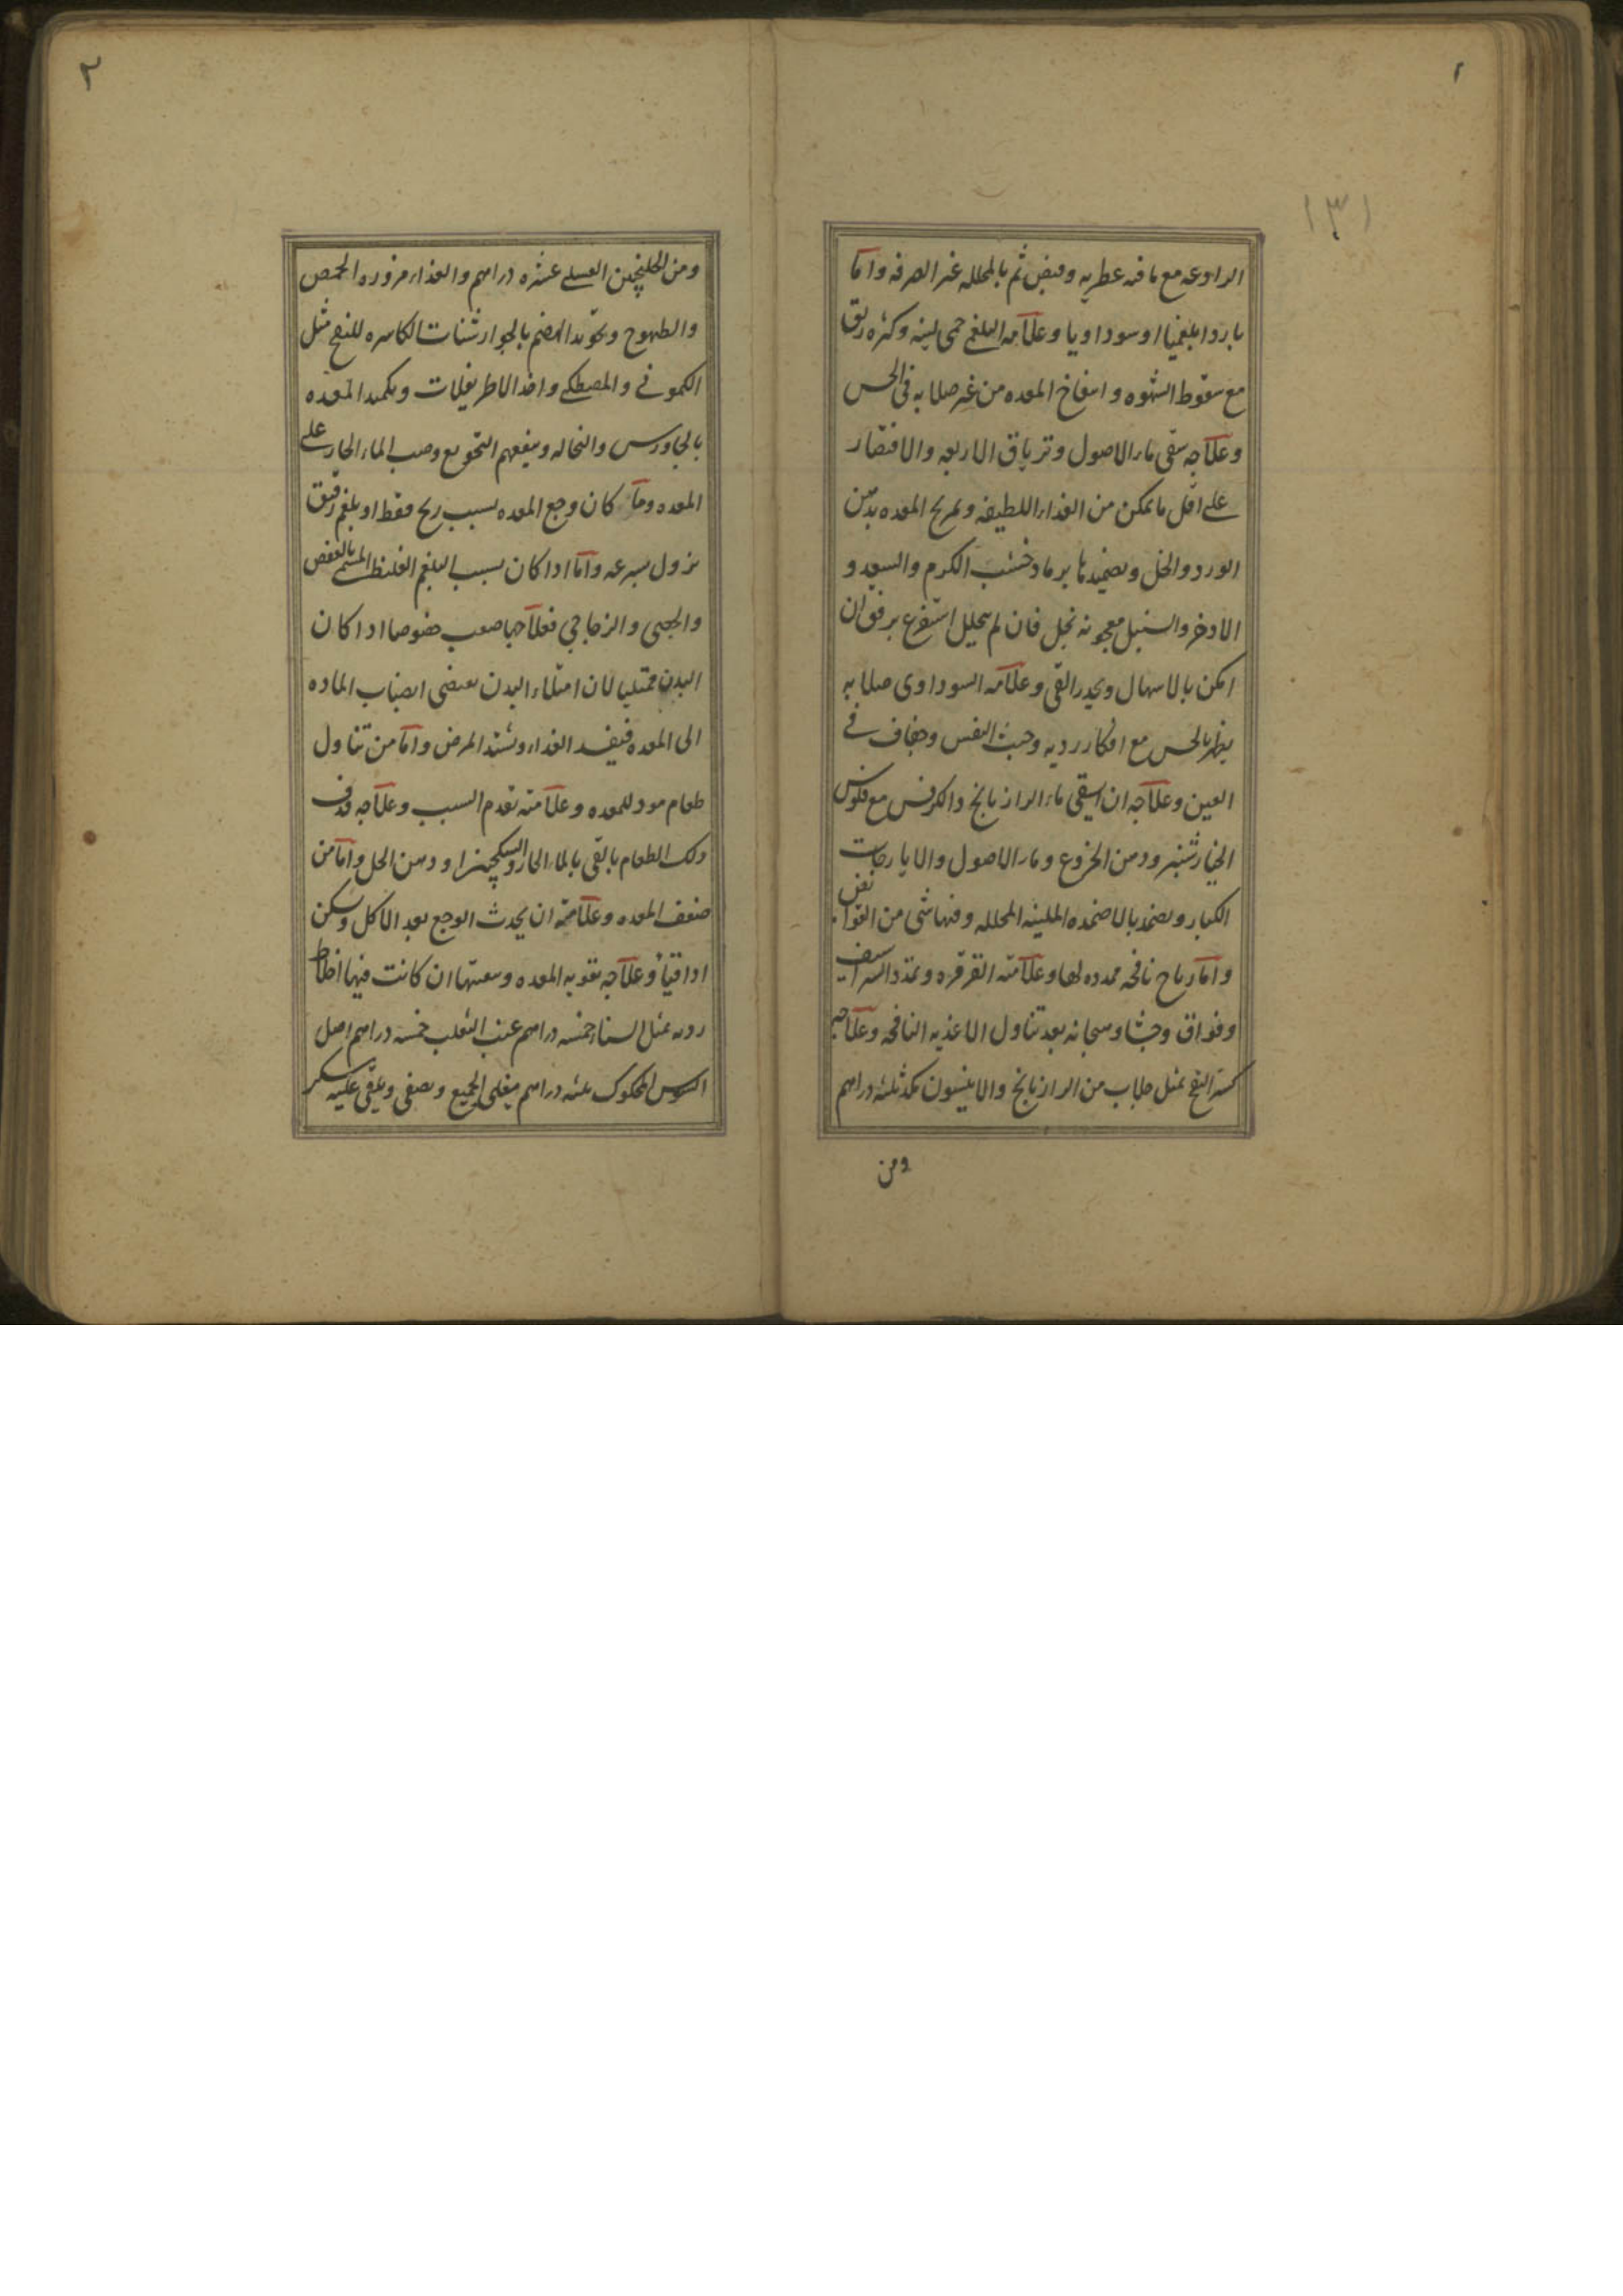 ١
١٣١
الرادعه مع ما فيه عطريه وقبض ثم بالمحلله غير الصرفه واما
باردا بلغميا او سوداويا وعلامه البلغمى حمى لينه وكثره ريق
مع سقوط الشهوه وانتفاخ المعده من غير صلابه فى الحس
وعلاجه سقى ماء الاصول وترياق الاربعه والاقتصار
على اقل ما يمكن من الغذاء اللطيفه وتمريخ المعده بدهن
الورد والخل وتضميدها برماد خشب الكرم والسعد و
الاذخر والسنبل معجونه بخل فان لم يتحلل استفرغ برفق ان
امكن بالاسهال ويحذر القى وعلامه السوداوى صلابه
يظهر بالحس مع افكار رديه وخبث النفس وجفاف فى
العين وعلاجه ان يسقى ماء الرازيانج والكرفس مع فلوس
الخيارشنبر ودهن الخروع وماء الاصول والايارجات
الكبار ويضمد بالاضمده الملينه المحلله وفيها شى من القوابض
واما رياح نافخه ممدده لها وعلامته القرقره وتمدد الشراسيف
وفواق وجشا وهيجانه بعد تناول الاغذيه النافخه وعلاجه
كسر النفخ بمثل جلاب من الرازيانج والانيسون مكد ثلثه دراهم
ومن
٢
ومن الجلنجبين العسلى عشره دراهم والغذاء مزوره الحمص
والطيهوج وتجويد الهضم بالجوارشنات الكاسره للنفخ مثل
الكمونى والمصطكى واخذ الاطريفلات وتكميد المعده
بالجاورس والنخاله وينفعهم التجويع وصب الماء الحار على
المعده وما كان وجع المعده بسبب ريح فقط او بلغم رقيق
يزول بسرعه واما اذا كان بسبب البلغم الغليظ المسمى بالعفص
والجصى والزجاجى فعلاجها صعب خصوصا اذا كان
البدن ممتليا لان امتلاء البدن يقتضى انصباب الماده
الى المعده فيفسد الغذاء ويشتد المرض واما من تناول
طعام موذ للمعده وعلامته تقدم السبب وعلاجه قذف
ذلك الطعام بالقى بالماء الحار والسكنجبين او دهن الحل واما من
ضعف المعده وعلامته ان يحدث الوجع بعد الاكل ويسكن
اذا قيأ وعلاجه تقويه المعده وسعتها ان كانت فيها اخلاط
رديه بمثل السنا خمسه دراهم عنب الثعلب خمسه دراهم اصل
السوس المحكوك ثلثه دراهم يغلى الجميع ويصفى ويلقى عليه سكر